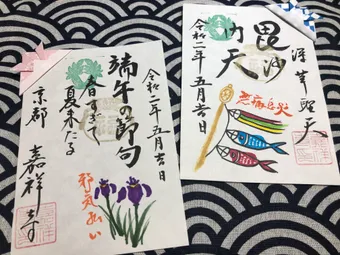 令和二年五月吉日
端午の節句
春すぎて
夏来たる
邪気払い
京都 嘉祥寺
深草聖天
毘沙
門天
無病息災
令和二年五月吉日